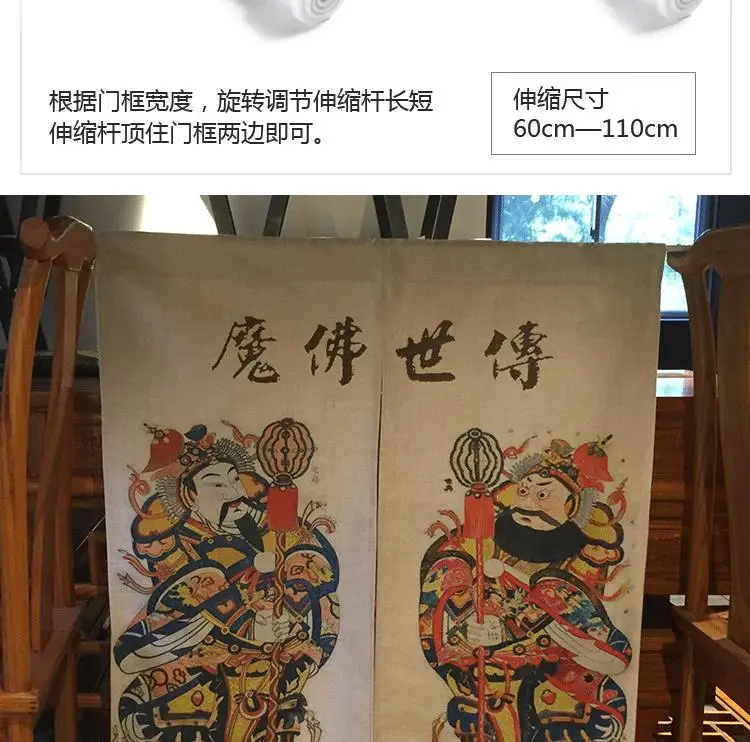 根据门框宽度，旋转调节伸缩杆长短
伸缩杆顶住门框两边即可。
伸缩尺寸
60cm—110cm
魔佛世傳